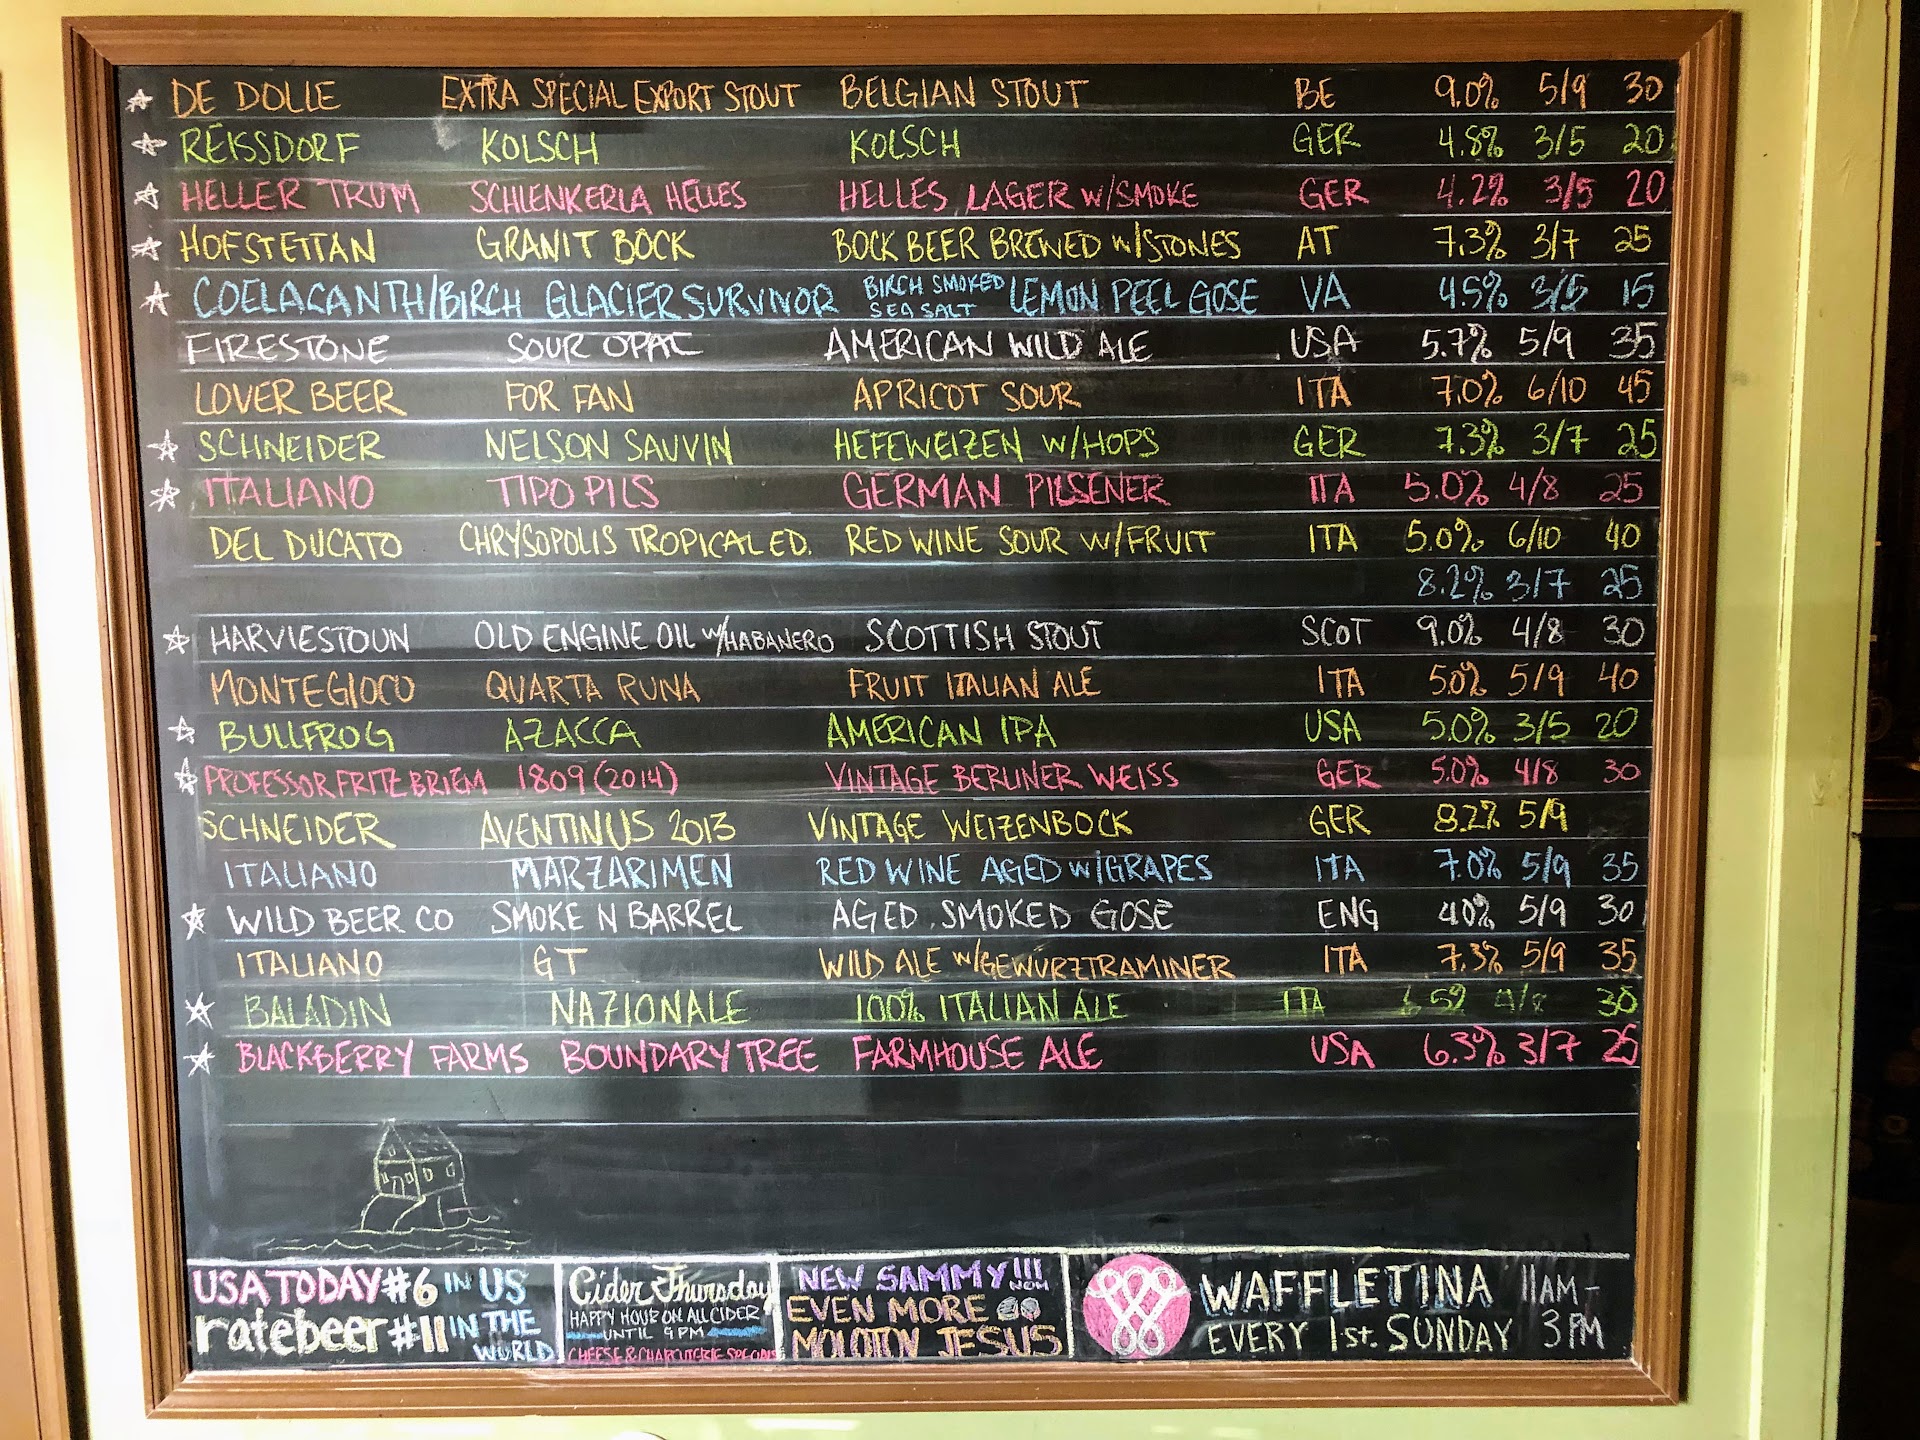 ☆ DE DOLLE EXTRA SPECIAL EXPORT STOUT BELGIAN STOUT BE 9.0% 5/9 30
☆ REISSDORF KOLSCH KOLSCH GER 4.8% 3/5 20
☆ HELLER TRUM SCHLENKERLA HELLES HELLES LAGER W/SMOKE GER 4.2% 3/5 20
☆ HOFSTETTAN GRANIT BOCK BOCK BEER BREWED W/STONES AT 7.3% 3/7 25
☆ COELACANTH/BIRCH GLACIER SURVIVOR BIRCH SMOKED SEA SALT LEMON PEEL GOSE VA 4.5% 3/5 15
FIRESTONE SOUR OPAL AMERICAN WILD ALE USA 5.7% 5/9 35
LOVER BEER FOR FAN APRICOT SOUR ITA 7.0% 6/10 45
☆ SCHNEIDER NELSON SAUVIN HEFEWEIZEN W/HOPS GER 7.3% 3/7 25
☆ ITALIANO TIPO PILS GERMAN PILSENER ITA 5.0% 4/8 25
DEL DUCATO CHRYSOPOLIS TROPICAL ED. RED WINE SOUR W/FRUIT ITA 5.0% 6/10 40
8.2% 3/7 25
☆ HARVIESTOUN OLD ENGINE OIL W/HABANERO SCOTTISH STOUT SCOT 9.0% 4/8 30
MONTEGIOCO QUARTA RUNA FRUIT ITALIAN ALE ITA 5.0% 5/9 40
☆ BULLFROG AZACCA AMERICAN IPA USA 5.0% 3/5 20
☆ PROFESSOR FRITZ BRIEM 1809 (2014) VINTAGE BERLINER WEISS GER 5.0% 4/8 30
SCHNEIDER AVENTINUS 2013 VINTAGE WEIZENBOCK GER 8.2% 5/9
ITALIANO MARZARIMEN RED WINE AGED W/GRAPES ITA 7.0% 5/9 35
☆ WILD BEER CO SMOKE N BARREL AGED, SMOKED GOSE ENG 4.0% 5/9 30
ITALIANO GT WILD ALE W/GEWURZTRAMINER ITA 7.3% 5/9 35
☆ BALADIN NAZIONALE 100% ITALIAN ALE ITA 6.5% 4/8 30
☆ BLACKBERRY FARMS BOUNDARY TREE FARMHOUSE ALE USA 6.3% 3/7 25
USA TODAY #6 IN US
ratebeer #11 IN THE WORLD
Cider Thursday
HAPPY HOUR ON ALL CIDER
UNTIL 9 PM
CHEESE & CHARCUTERIE SPECIALS
NEW SAMMY!!! NOM
EVEN MORE
MOLOTOV JESUS
WAFFLETINA 11AM-
EVERY 1st. SUNDAY 3PM